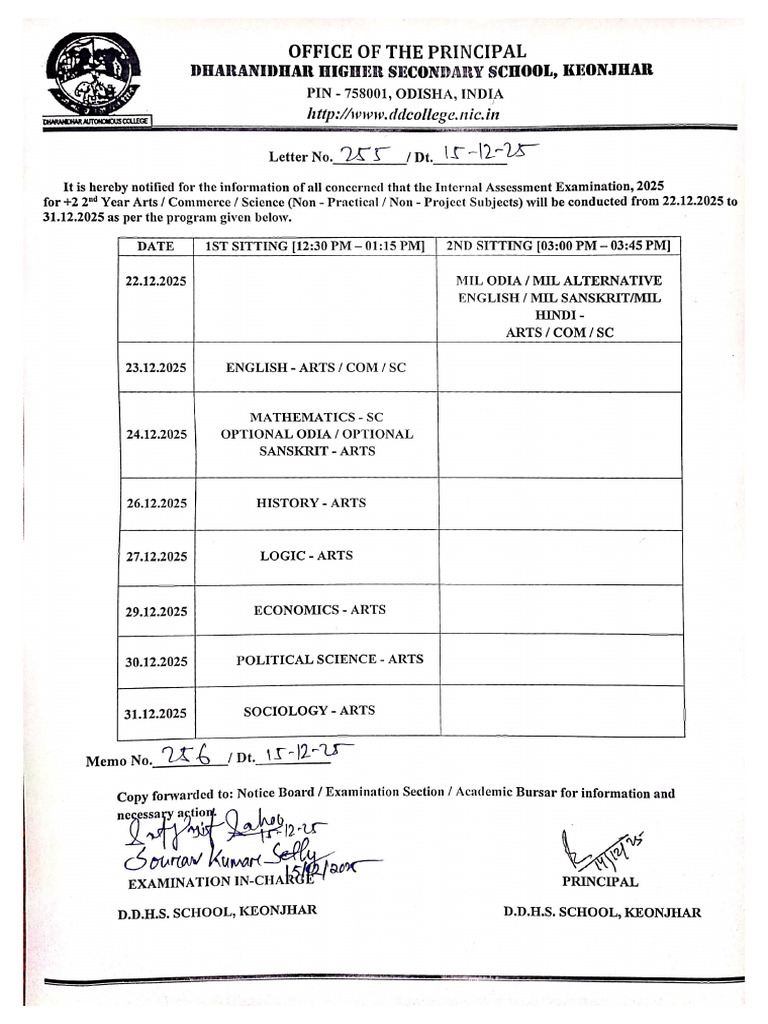 DHARANIDHAR AUTONOMOUS COLLEGE
OFFICE OF THE PRINCIPAL
DHARANIDHAR HIGHER SECONDARY SCHOOL, KEONJHAR
PIN - 758001, ODISHA, INDIA
http://www.ddcollege.nic.in
Letter No. 255 / Dt. 15-12-25
It is hereby notified for the information of all concerned that the Internal Assessment Examination, 2025
for +2 2nd Year Arts / Commerce / Science (Non - Practical / Non - Project Subjects) will be conducted from 22.12.2025 to
31.12.2025 as per the program given below.
DATE 1ST SITTING [12:30 PM – 01:15 PM] 2ND SITTING [03:00 PM – 03:45 PM]
22.12.2025 MIL ODIA / MIL ALTERNATIVE
ENGLISH / MIL SANSKRIT/MIL
HINDI -
ARTS / COM / SC
23.12.2025 ENGLISH - ARTS / COM / SC
MATHEMATICS - SC
24.12.2025 OPTIONAL ODIA / OPTIONAL
SANSKRIT - ARTS
26.12.2025 HISTORY - ARTS
27.12.2025 LOGIC - ARTS
29.12.2025 ECONOMICS - ARTS
30.12.2025 POLITICAL SCIENCE - ARTS
31.12.2025 SOCIOLOGY - ARTS
Memo No. 256 / Dt. 15-12-25
Copy forwarded to: Notice Board / Examination Section / Academic Bursar for information and
necessary action.
15-12-25
Kumar 15/12/2025
14/12/25
EXAMINATION IN-CHARGE PRINCIPAL
D.D.H.S. SCHOOL, KEONJHAR D.D.H.S. SCHOOL, KEONJHAR